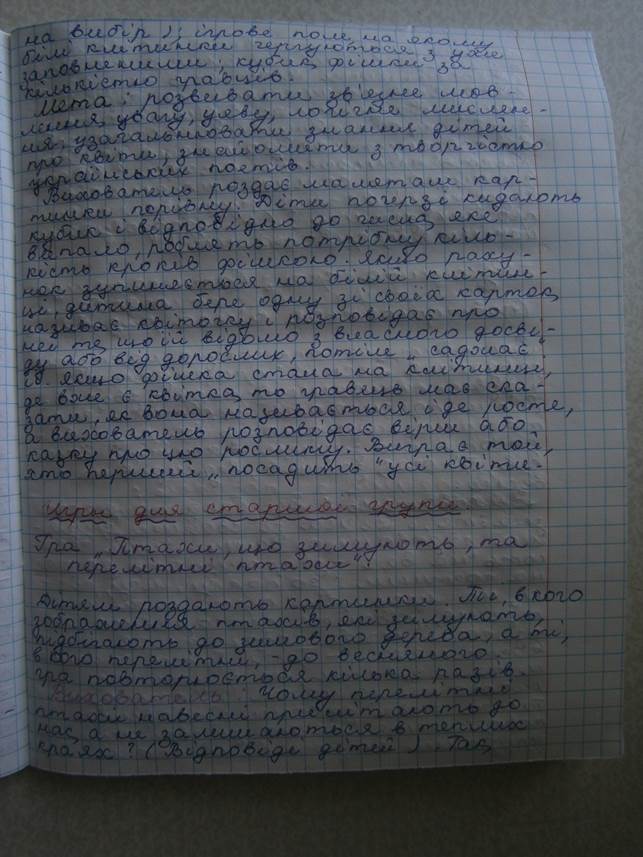 на вибір); ігрове поле, на якому
білі клітинки чергуються з уже
заповненими; кубик, фішки за
кількістю гравців.
Мета: розвивати зв'язне мов-
лення, увагу, уяву, логічне мислен-
ня, узагальнювати знання дітей
про квіти, знайомити з творчістю
українських поетів.
Вихователь роздає малятам кар-
тинки порівну. Діти по черзі кидають
кубик і відповідно до числа, яке
випало, роблять потрібну кіль-
кість кроків фішкою. Якщо раху-
нок зупиняється на білій клітин-
ці, дитина бере одну зі своїх карток,
називає квіточку і розповідає про
неї те, що їй відомо з власного досві-
ду або від дорослих, потім „саджає"
її. Якщо фішка стала на клітинці,
де вже є квітка, то гравець має ска-
зати, як вона називається і де росте,
а вихователь розповідає вірш або
казку про цю рослину. Виграє той,
хто перший „посадить" усі квіти.
Ігри для старшої групи.
Гра „Птахи, що зимують, та
перелітні птахи".
Дітям роздають картинки. Ті, в кого
зображення птахів, які зимують,
підбігають до зимового дерева, а ті,
в кого перелітні, - до весняного.
Гра повторюється кілька разів.
Вихователь: Чому перелітні
птахи навесні прилітають до
нас, а не залишаються в теплих
краях? (Відповіді дітей). Так,